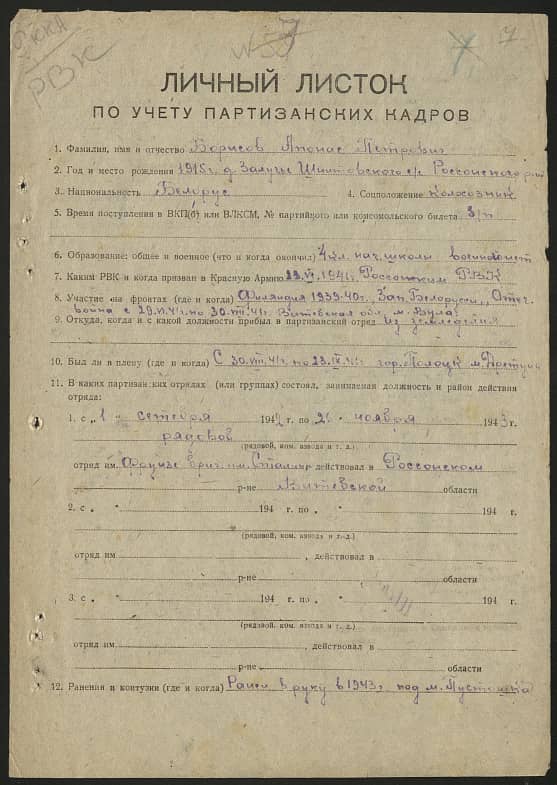 РККА
РВК
7
ЛИЧНЫЙ ЛИСТОК
ПО УЧЕТУ ПАРТИЗАНСКИХ КАДРОВ
1. Фамилия, имя и отчество Борисов Апонас Петрович
2. Год и место рождения 1915 г. д. Залужье с/с Россонского р-на
3. Национальность Белорус 4. Соцположение Колхозник
5. Время поступления в ВКП(б) или ВЛКСМ, № партийного или комсомольского билета б/п
6. Образование: общее и военное (что и когда окончил) 4 кл. нач. школи
7. Каким РВК и когда призван в Красную Армию 1941 г. Россонским РВК
8. Участие на фронтах (где и когда) Финляндия 1939-40 г., Зап. Белоруссия, Отеч.
война с 29.VI.41 г. по 30.VIII.41 г. Витебская обл. м. Вула.
9. Откуда, когда и с какой должности прибыл в партизанский отряд из земледелия
10. Был ли в плену (где и когда) С 30.VIII.41 г. по 23.IX.41 г. гор. Полоцк м.
11. В каких партизанских отрядах (или группах) состоял, занимаемая должность и район действия
отряда:
1. с „1" сетебря 1942 г. по 26 " ноября 1943 г.
рядовов
(рядовой, ком. взвода и т. д.)
отряд им. Фрунзе бриг. им. Сталина действовал в Россонском
р-не Витебской области
2. с „ " 194 г. по „ " 194 г.
(рядовой, ком. взвода и т. д.)
отряд им , действовал в
р-не области
3. с „ " 194 г. по „ " 194 г.
(рядовой, ком. взвода и т. д.)
отряд им. , действовал в
р-не области
12. Ранения и контузии (где и когда) Ранен в руку в 1943 г. под м. Пустошка